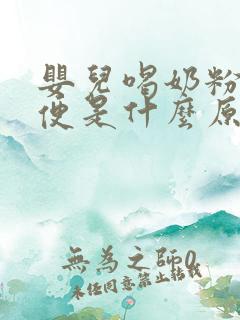 嬰兒喝奶粉
便是什麼原
無為之師0
未經同意禁止轉載